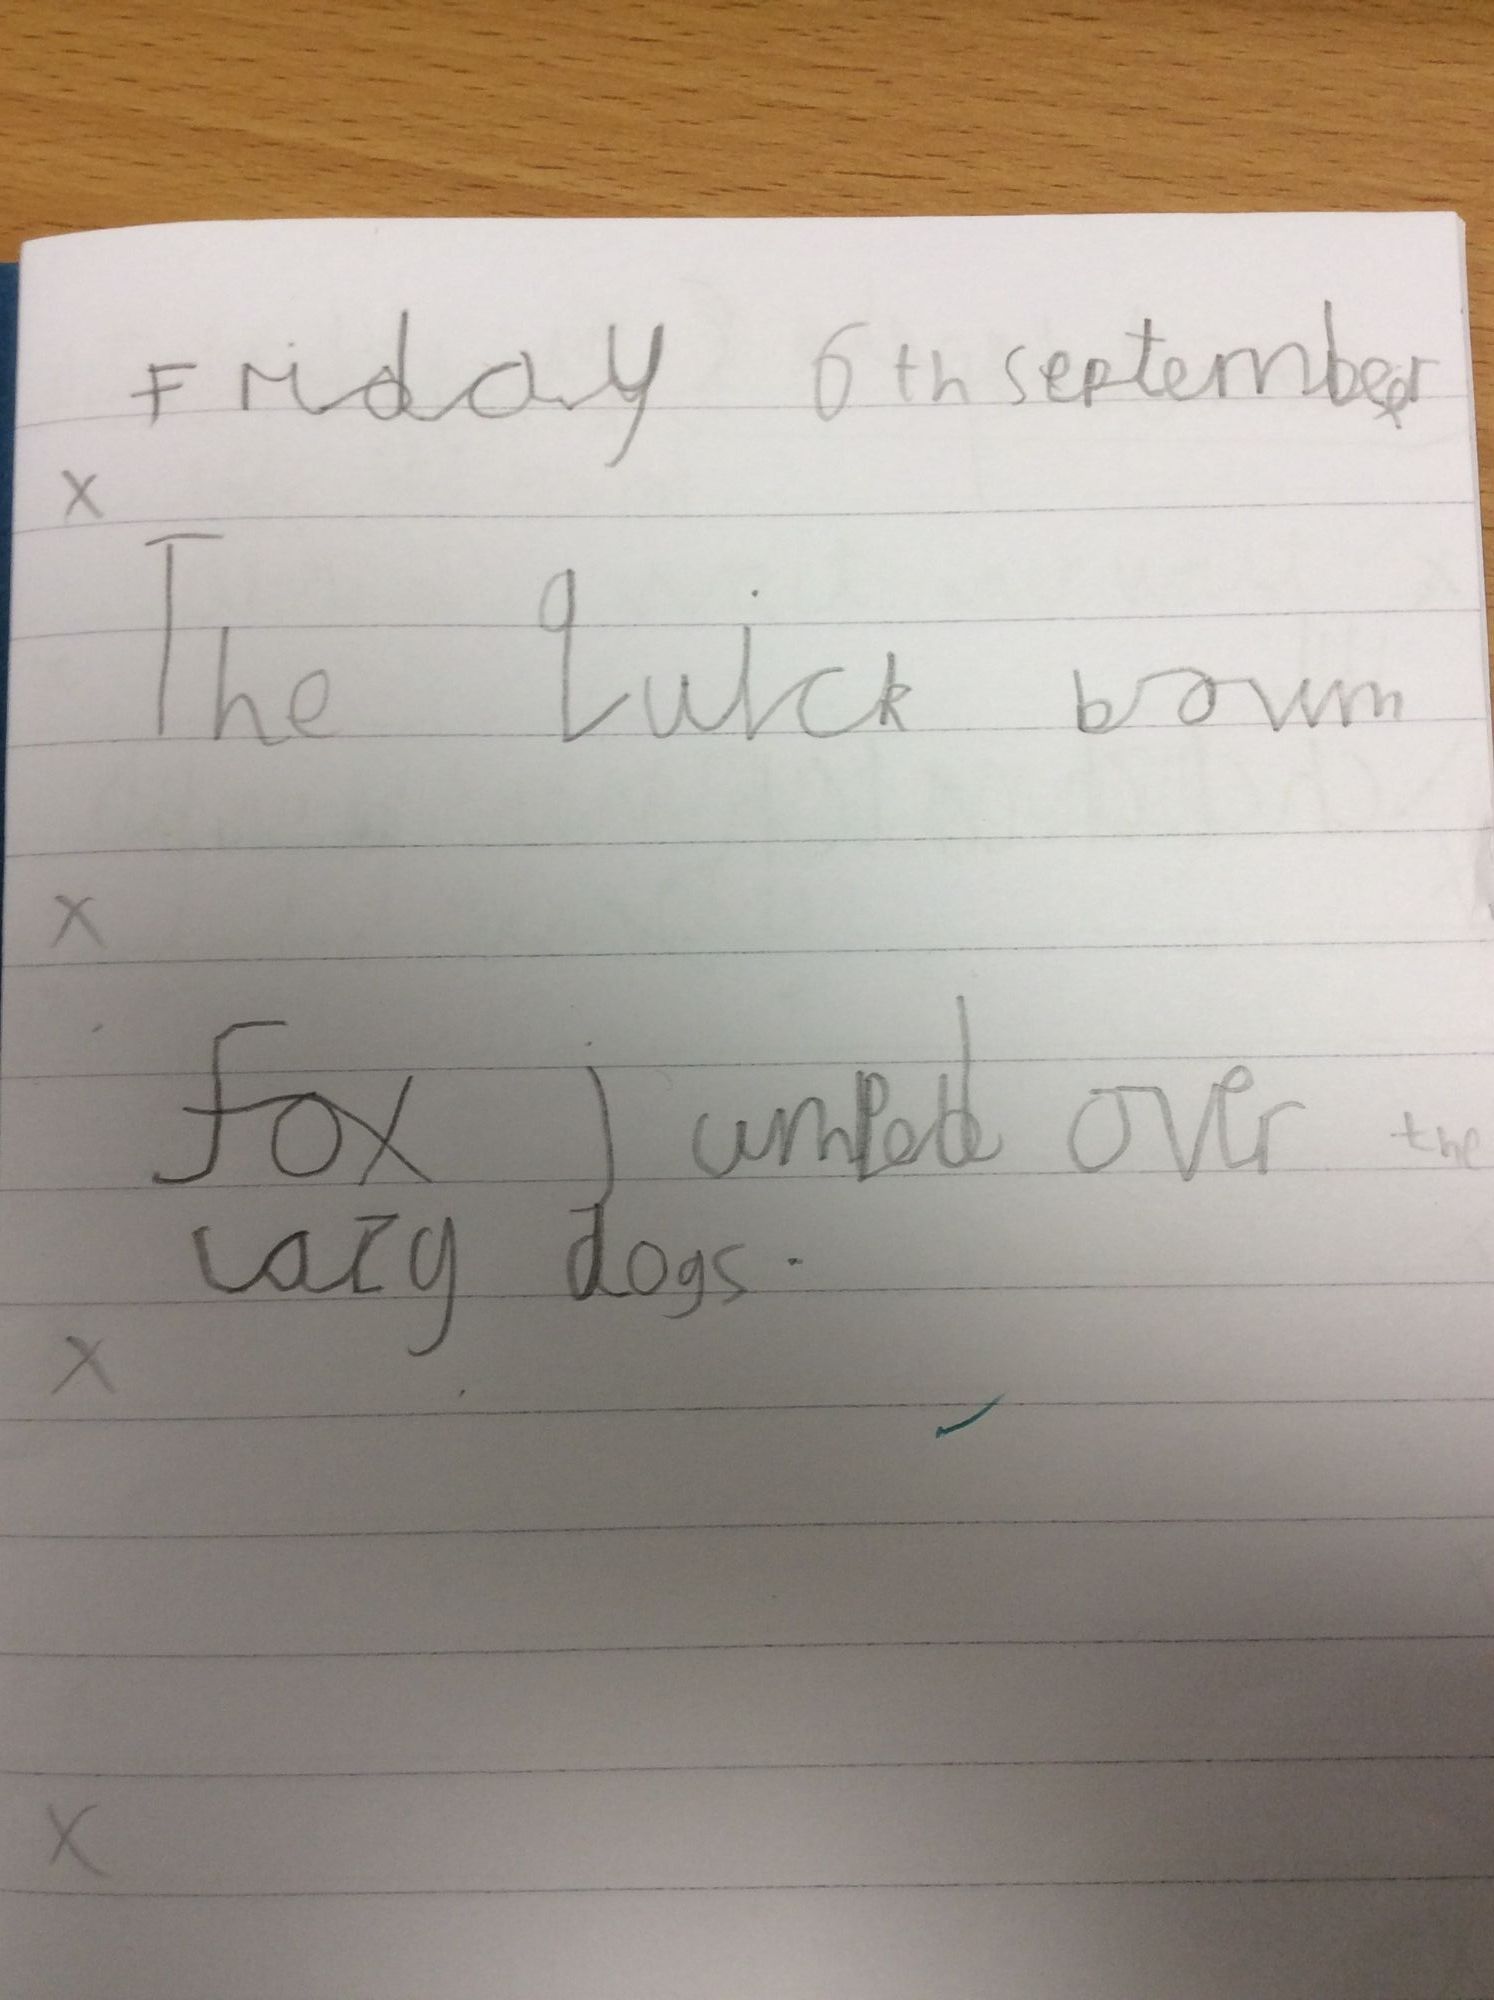 Friday 6th september
x
The quick brown
x
fox jumped over the
lazy dogs.
x
x